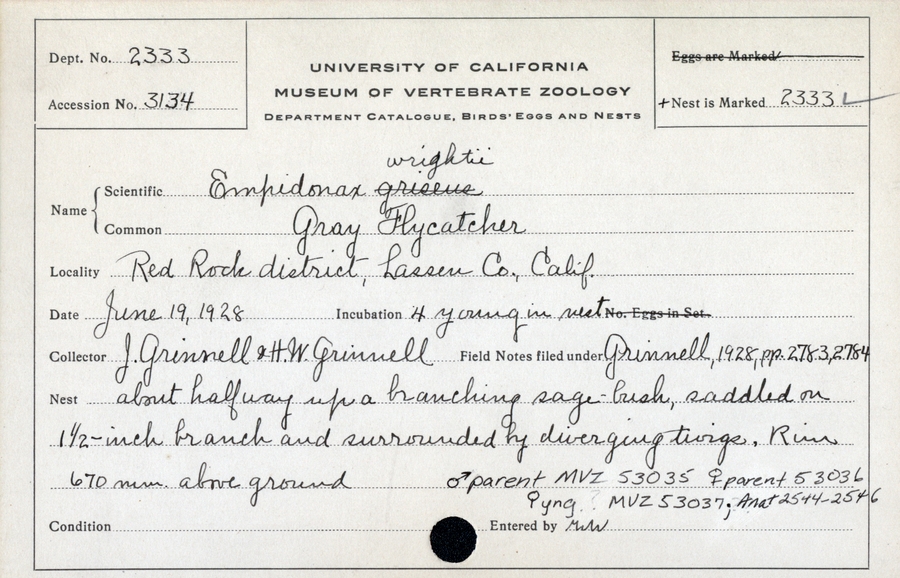 Dept. No. 2333
Accession No. 3134
UNIVERSITY OF CALIFORNIA
MUSEUM OF VERTEBRATE ZOOLOGY
DEPARTMENT CATALOGUE, BIRDS' EGGS AND NESTS
Eggs are Marked
+ Nest is Marked 2333
wrightii
Name
Scientific Empidonax griseus
Common Gray Flycatcher
Locality Red Rock district, Lassen Co., Calif.
Date June 19, 1928 Incubation 4 young in nest No. Eggs in Set
Collector J. Grinnell & H.W. Grinnell Field Notes filed under Grinnell, 1928, pp. 2783, 2784
Nest about halfway up a branching sage-bush, saddled on
1½-inch branch and surrounded by diverging twigs. Rim
670 mm. above ground ♂ parent MVZ 53035 ♀ parent 53036
♀ yng. ? MVZ 53037; Anat 2544-2546
Condition Entered by